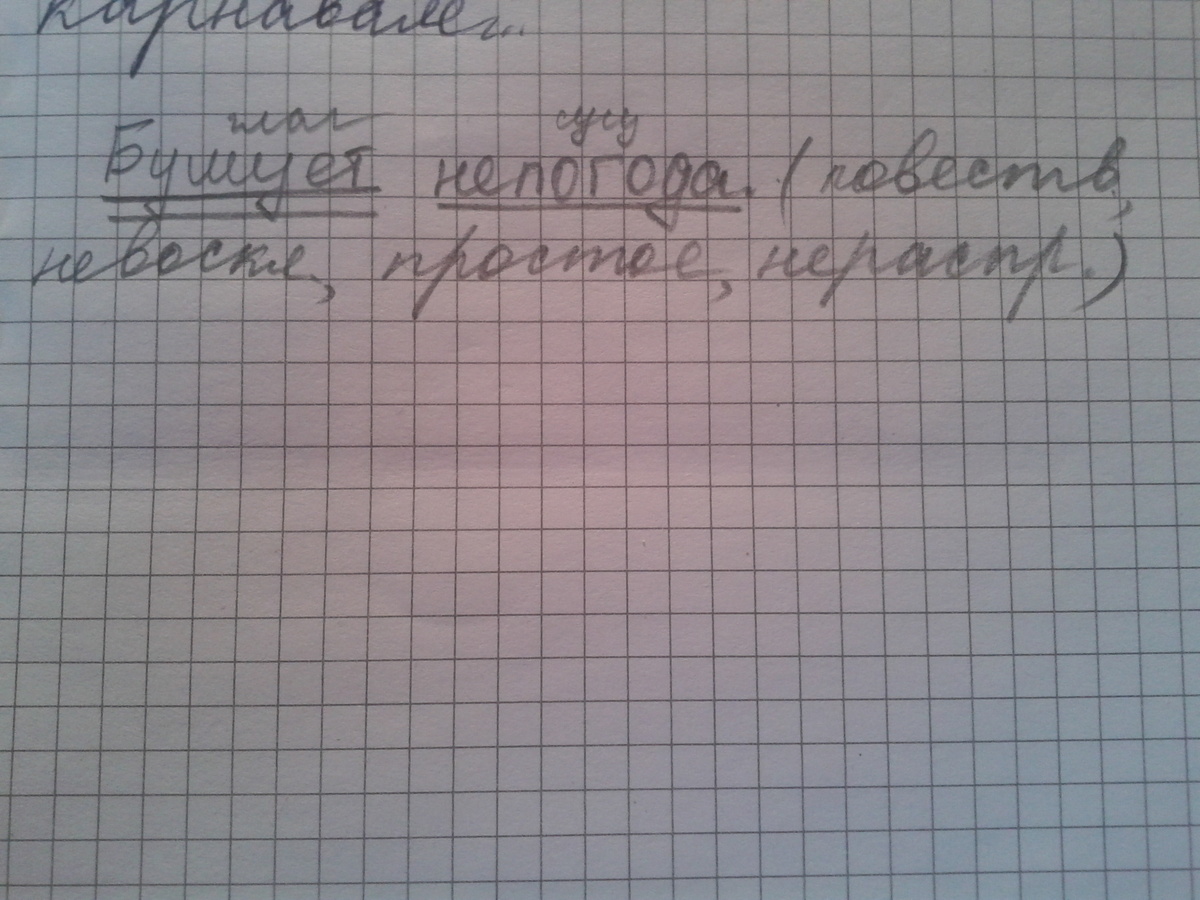 карнавале...
глаг сущ
Бушует непогода. (повеств,
невоскл, простое, нераспр.)